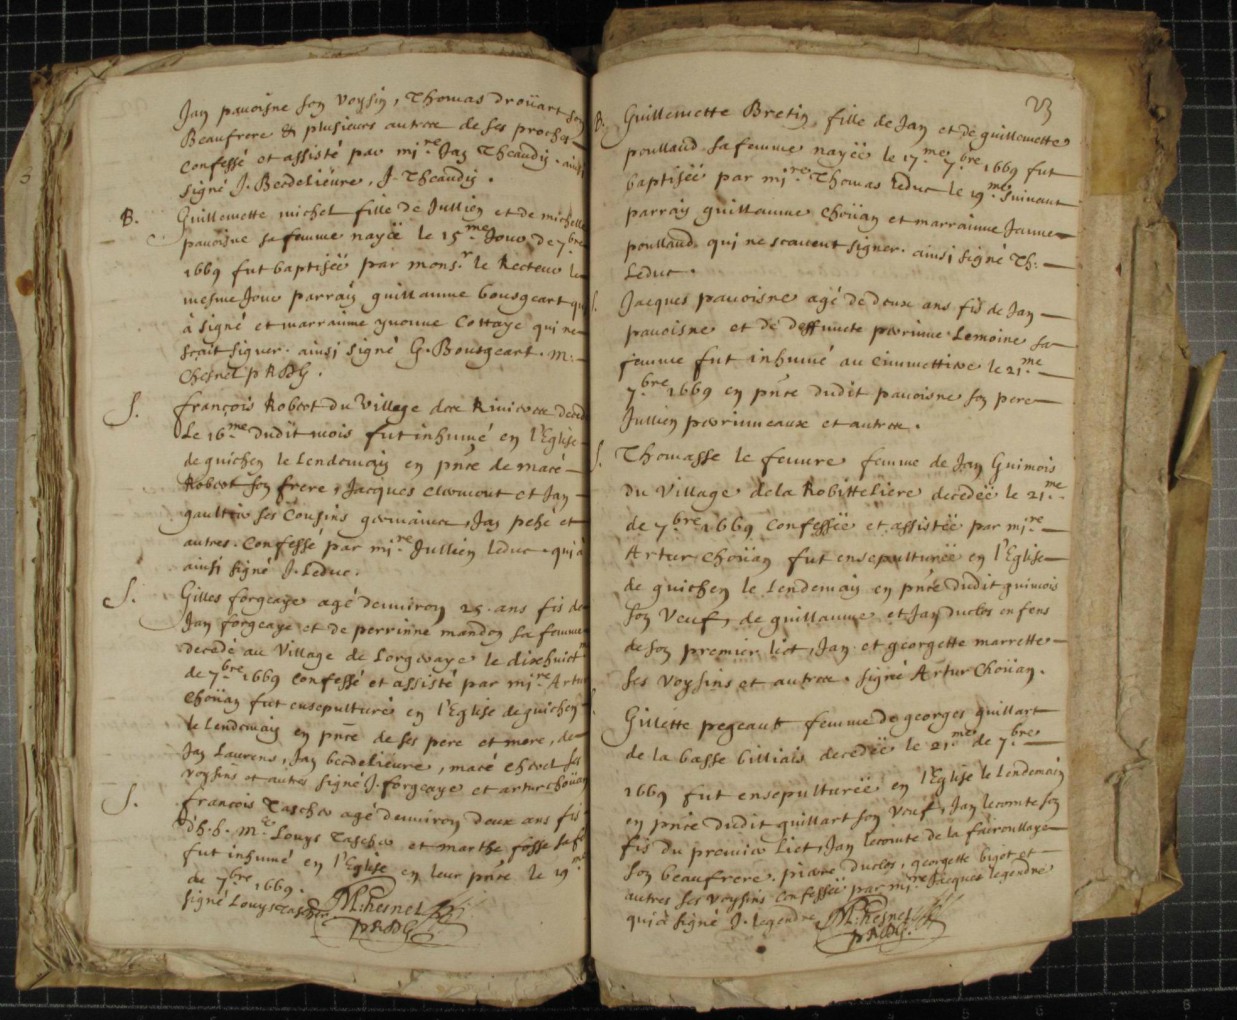 Jan pavoisne son voysin, Thomas droüart son
Beaufrere & plusieurs autres de ses proches
Confessé et assisté par mi.re Jan Theaudin. ainsi
signé J. Berdelieure, J. Theaudin.
B. Guillemette michel fille de Jullien et de michelle
pavoisne sa femme nayëe le 15.me Jour de 7.bre
1669 fut baptiséë par mons.r le Recteur le
mesme Jour parrain guillaume bousgeart qui
à signé et marraimme yvonne Cottaye qui ne
sçait signer. ainsi signé G. Bousgeart. M.
Chesnel p R D G.
S. françois Robert du Village des Rivieres deced
Le 16.me dudit mois fut inhumé en l'Eglise
de guichen le Lendemain en pn̄ce de macé
Robert son frere, Jacques clermont et Jan
gaultier ses Cousins germains, Jan pehé et
autres. Confesse par mi.re Jullien Leduc. qui à
ainsi signé J. Leduc.
S. Gilles forgeaye agé denviron 25. ans fis de
Jan forgeaye et de perrinne mandon sa femme
decedé au Village de Lorgeraye le dixhuict
de 7.bre 1669 confessé et assisté par mi.re Artur
Choüan fut ensepulturé en l'Eglise de guichen
le Lendemain en pn̄ce de ses pere et mere, de
Jan Laurens, Jan berdelieure, macé ses
voysins et autres signé J. forgeaye et artur choüan
S. francois Tascher agé denviron deux ans fis
d'h. h. M.e Louys Tascher et marthe fosse sa f
fut inhumé en l'Eglise en leur pn̄ce le 19.me
de 7.bre 1669.
signé Louys Tascher M. Chesnel
p R D G
23
B. Guillemette Bretin, fille de Jan et de guillemette
poullaud sa femme nayëe le 17.me 7.bre 1669 fut
baptiséë par mi.re Thomas Leduc le 19.me suivant
parrain guillaume Choüan et marraimme Janne
poullaud qui ne scavent signer. ainsi signé Th.
Leduc.
S. Jacques pavoisne agé de deux ans fis de Jan
pavoisne et de deffuncte perrinne Lemoine sa
femme fut inhumé au cimmettiere le 21.me
7.bre 1669 en pn̄ce dudit pavoisne son pere
Jullien perrimeaux et autres.
S. Thomasse le feuvre femme de Jan Guimois
du Village de la Robitteliere decedéë le 21.me
de 7.bre 1669 Confesséë et assistéë par mi.re
Artur Choüan fut ensepulturéë en l'Eglise
de guichen le Lendemain en pn̄ce dudit guimois
son Veuf, de guillaume et Jan duclos enfens
de son premier lict, Jan et georgette marrette
ses Voysins et autres. signé Artur Choüan.
S. Gillette pegeault femme de georges quillart
de la basse billiais decedéë le 21.me de 7.bre
1669 fut ensepulturéë en l'Eglise le Lendemain
en pn̄ce dudit quillart son veuf, Jan lecomte son
fis du premier lict, Jan lecomte de la fairoullaye
son beaufrere. pierre duclos, georgette bigot et
autres ses voysins confesséë par mi.re Jacques legendre
qui à signé J. Legendre M. Chesnel
p R D G.